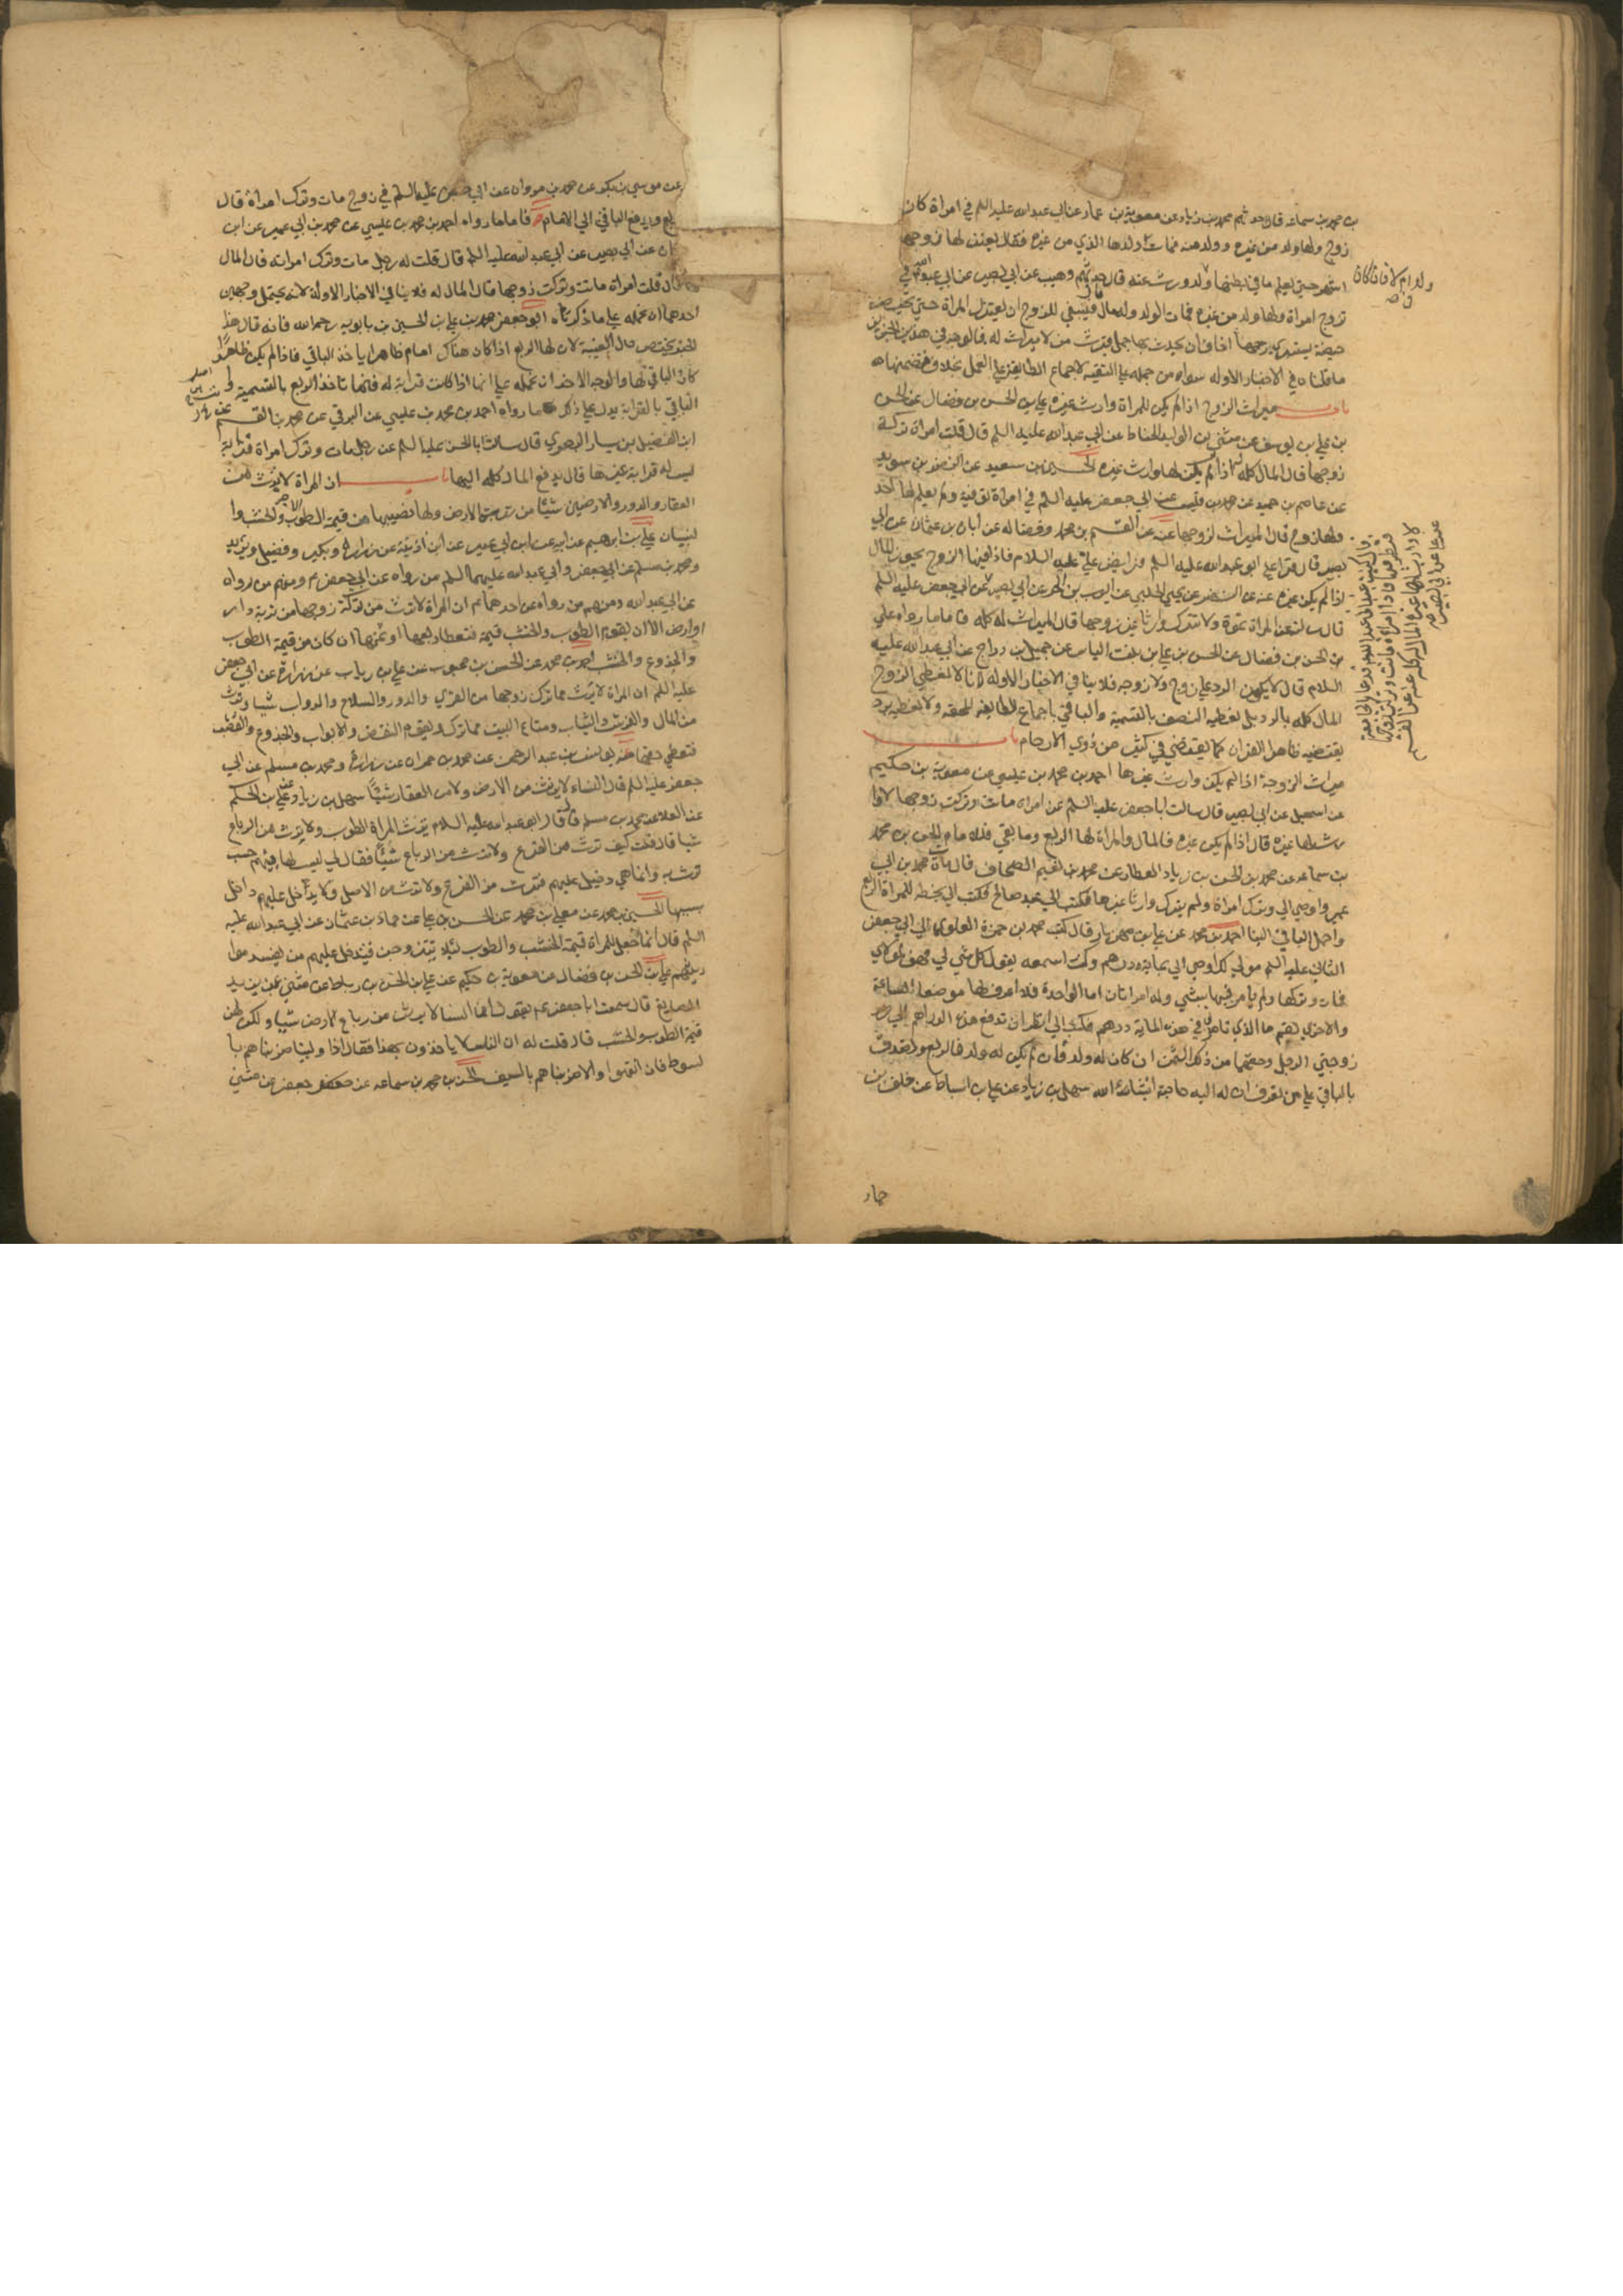 بن محمد بن سماعه قال حدثهم محمد بن زياد عن معوية بن عمار عن ابي عبدالله عليه السلم في امراة كان
زوج ولها ولد من غيره وولد منه فمات ولدها الذي من غيره فقال يعتزلها زوجها
اشهر حتي يعلم ما في بطنها ولد ورث عنه قال حدثهم وهيب عن ابي بصير عن ابي عبدالله في
تزوج امراة ولها ولد من غيره فمات الولد وله مال فينبغي للزوج ان يعتزل المراة حتي تحيض
حيضة يستبرئ رحمها اخاف ان يحدث بها حمل فيرث من لا ميراث له فالوجه في هذين الخبرين
ما قلناه في الاخبار الاوله سواه من حمله علي التقيه لاجماع الطايفة علي العمل بخلاف متضمنهما
باب ميراث الزوج اذا لم يكن للمراة وارث غيره علي بن الحسن بن فضال عن الحسن
بن علي بن يوسف عن مثني بن الوليد الحناط عن ابي عبدالله عليه السلم قال قلت امراة تركت
زوجها قال المال كله له اذا لم يكن لها وارث غيره الحسين بن سعيد عن النضر بن سويد
عن عاصم بن حميد عن محمد بن قيس عن ابي جعفر عليه السلم في امراة توفيت ولم يعلم لها احد
ولها زوج قال الميراث لزوجها عنه عن القسم بن محمد وفضاله عن ابان بن عثمان عن ابي
بصير قال قرا علي ابو عبدالله عليه السلم فرايض علي عليه السلام فاذا فيها الزوج يحوز المال
اذا لم يكن غيره عنه عن النضر عن يحيي الحلبي عن ايوب بن الحر عن ابي بصير عن ابي جعفر عليه السلم
قال سالته عن المراة تموت ولا تترك وارثا غير زوجها قال الميراث له كله فاما ما رواه علي
بن الحسن بن فضال عن الحسن بن علي بن بنت الياس عن جميل بن دراج عن ابي عبدالله عليه
السلام قال لا يكون الرد علي زوج ولا زوجه فلا ينافي الاخبار الاوله لانا لا نعطي الزوج
المال كله بالرد بل نعطيه النصف بالتسمية والباقي باجماع الطايفة المحقه ولا نعطيه برد
يقتضيه ظاهر القران كما يقتضي في كثير من ذوي الارحام باب
ميراث الزوجة اذا لم يكن وارث غيرها احمد بن محمد بن عيسي عن معوية بن حكيم
عن اسمعيل عن ابي بصير قال سالت ابا جعفر عليه السلم عن امراة ماتت وتركت زوجها لا وا
رث لها غيره قال اذا لم يكن غيره فالمال له والمراة لها الربع وما بقي فللامام الحسن بن محمد
بن سماعه عن محمد بن الحسن بن زياد العطار عن محمد بن نعيم الصحاف قال مات محمد بن ابي
عمير واوصي الي وترك امراة ولم يترك وارثا غيرها فكتبت الي عبد صالح فكتب الي بخطه للمراة الربع
واحمل الباقي الينا احمد بن محمد عن علي بن مهزيار قال كتب محمد بن حمزة العلوي الي ابي جعفر
الثاني عليه السلم مولي لك اوصي الي بماية درهم وكنت اسمعه يقول كل شي لي فهو لمولاي
فمات وتركها ولم يامر فيها بشي وله امراتان اما الواحدة فلا اعرف لها موضعا الساعة
والاخري بقم ما الذي تامرني في هذه الماية درهم فكتب الي انظر ان تدفع هذه الدراهم الي
زوجتي الرجل وحقهما من ذلك الثمن ان كان له ولد فان لم يكن له ولد فالربع وتصدق
بالباقي علي من تعرف ان له اليه حاجة انشاءالله سهل بن زياد عن علي بن اسباط عن خلف بن
حماد
عن موسي بن بكر عن محمد بن مروان عن ابي جعفر عليه السلم في زوج مات وترك امراة قال
الربع ويدفع الباقي الي الامام فاما ما رواه احمد بن محمد بن عيسي عن محمد بن ابي عمير عن ابن
عن ابي بصير عن ابي عبدالله عليه السلم قال قلت له رجل مات وترك امراته قال المال
قال قلت امراة ماتت وتركت زوجها قال المال له فلا ينافي الاخبار الاولة لانه يحتمل وجهين
احدهما ان نحمله علي ما ذكره ابو جعفر محمد بن علي بن الحسين بن بابويه رحمه الله فانه قال هذا
الخبر يختص حال الغيبة لان لها الربع اذا كان هناك امام ظاهر ياخذ الباقي فاذا لم يكن ظاهر
كان الباقي لها والوجه الاخر ان نحمله علي انها اذا كانت قرابة له فانها تاخذ الربع بالتسمية و
الباقي بالقرابة يدل علي ذلك ما رواه احمد بن محمد بن عيسي عن البرقي عن محمد بن القسم
ابن الفضيل بن يسار البصري قال سالت ابا الحسن عليه السلم عن رجل مات وترك امراة قرابة
ليس له قرابة غيرها قال يدفع المال كله اليها باب ان المراة لا ترث من
العقار والدور والارضين شيئا من تربة الارض ولها نصيبها من قيمة الطوب والخشب وا
لبنيان علي بن ابرهيم عن ابيه عن ابن ابي عمير عن ابن اذينة عن زرارة وبكير وفضيل وبريد
ومحمد بن مسلم عن ابي جعفر وابي عبدالله عليهما السلم من رواه عن ابي جعفر ومنهم من رواه
عن ابي عبدالله ومنهم من رواه عن احدهما ان المراة لا ترث من تركة زوجها من تربة دار
او ارض الا ان يقوم الطوب والخشب قيمة فتعطا ربعها او ثمنها ان كان من قيمة الطوب
والجذوع والخشب احمد بن محمد عن الحسن بن محبوب عن علي بن رياب عن زرارة عن ابي جعفر
عليه السلم ان المراة لا ترث مما ترك زوجها من القري والدور والسلاح والدواب شيا وترث
من المال والفرش والثياب ومتاع البيت مما ترك ويقوم النقض والابواب والجذوع والقصب
فتعطي حقها منه يونس بن عبد الرحمن عن محمد بن حمران عن زرارة ومحمد بن مسلم عن ابي
جعفر عليه السلم قال النساء لا يرثن من الارض ولا من العقار شيئا سهل بن زياد عن علي بن الحكم
عن العلا عن محمد بن مسلم قال قال ابو عبدالله عليه السلام ترث المراة الطوب ولا ترث من الرباع
شيا قال قلت كيف ترث من الفرع ولا ترث من الرباع شيئا فقال لي ليس لها منهم حسب
ترث به وانما هي دخيل عليهم فترث من الفرع ولا ترث من الاصل ولا يدخل عليهم داخل
بسببها الحسين بن محمد عن معلي بن محمد عن الحسن بن علي عن حماد بن عثمان عن ابي عبدالله عليه
السلم قال انما جعل للمراة قيمة الخشب والطوب ليلا يتزوجن فيدخل عليهم من يفسد موا
ريثهم علي بن الحسن بن فضال عن معوية بن حكيم عن علي بن الحسن بن رباط عن مثني عن يزيد
الصايغ قال سمعت ابا جعفر يقول ان النسا لا يرثن من رباع الارض شيا ولكن لهن
قيمة الطوب والخشب قال قلت له ان الناس لا ياخذون بهذا فقال اذا ولينا ضربناهم با
لسوط فان انتهوا والا ضربناهم بالسيف الحسن بن محمد بن سماعه عن جعفر عن مثني